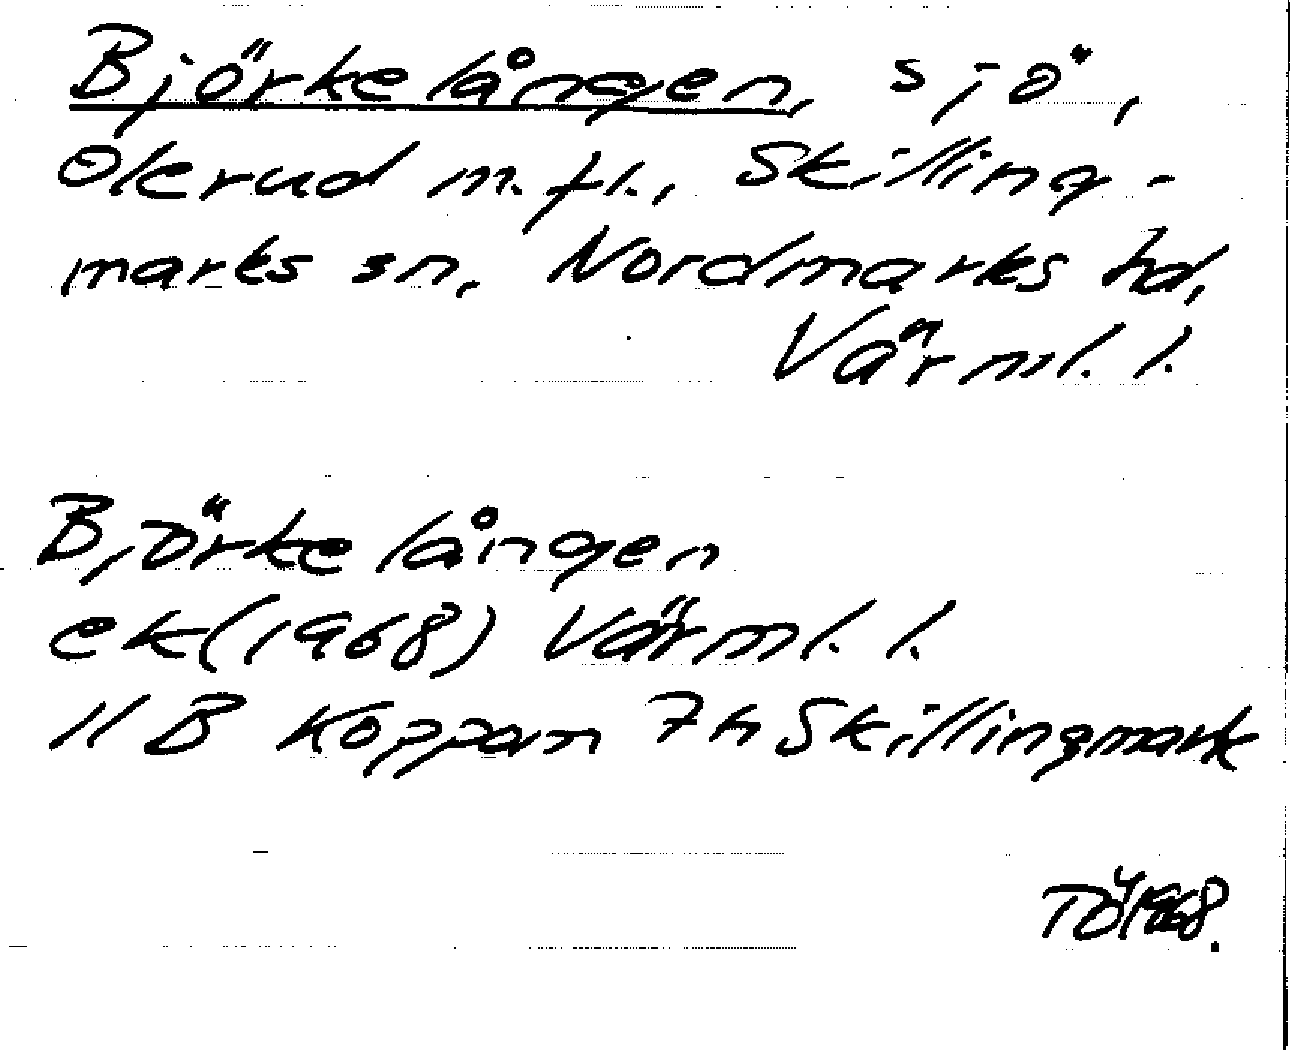 Björkelången, sjö,
Olerud m.fl., Skilling-
marks sn, Nordmarks hd,
Värml. l.
Björkelången
ek (1968) Värml. l.
11 B Koppom 7h Skillingmark
TÖ 1968.